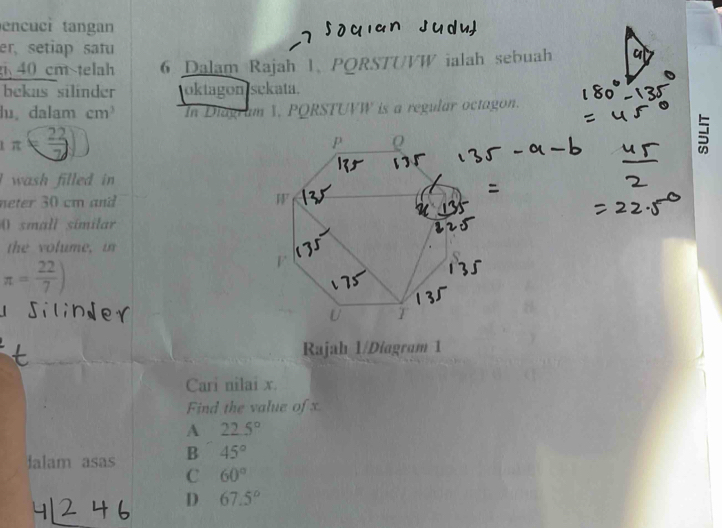 encuci tangan
er, setiap satu
gi, 40 cm telah
bekas silinder
lu, dalam cm³
π = 22/7)
wash filled in
meter 30 cm and
0 small similar
the volume, in
π = 22/7)
silinder
t
dalam asas
4 | 2 4 6
→ soalan sudut
6 Dalam Rajah 1, PQRSTUVW ialah sebuah
oktagon sekata.
In Diagram 1, PQRSTUVW is a regular octagon.
P Q
135 135
135 - a - b
=
W 135
x 135
225
135
V
S
135
135
135
U T
Rajah 1/Diagram 1
Cari nilai x.
Find the value of x.
A 22.5°
B 45°
C 60°
D 67.5°
a
180° - 135°
= 45°
45
2
= 22.5°
SULIT